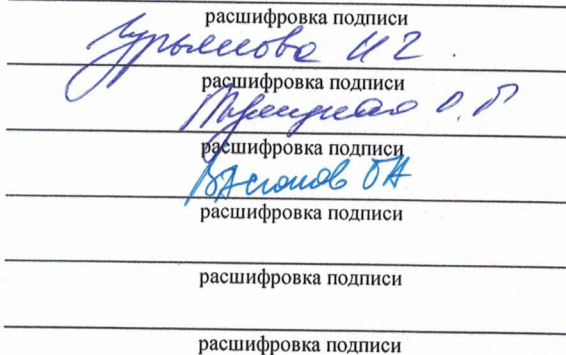 расшифровка подписи
Гурьянова И Г.
расшифровка подписи
О. П
расшифровка подписи
расшифровка подписи
расшифровка подписи
расшифровка подписи